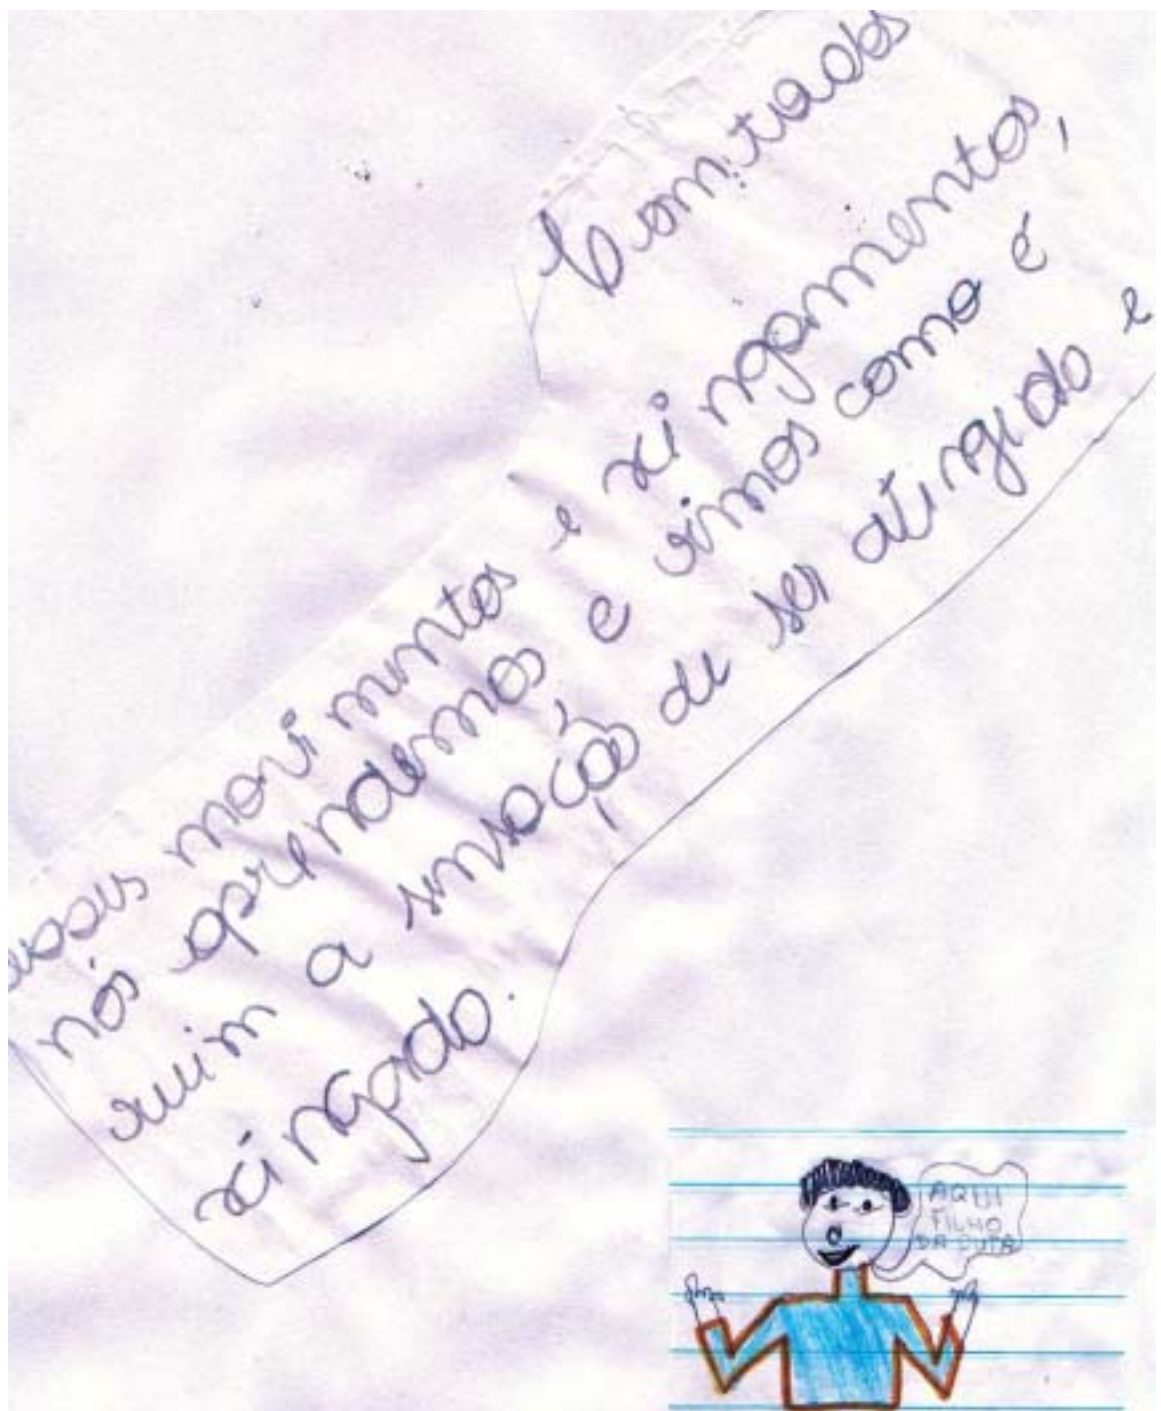 Com todos
esses movimentos e xingamentos,
nós aprendemos e vimos como é
ruim a sensação de ser atingido e
xingado.
AQUI
FILHO
DA PUTA